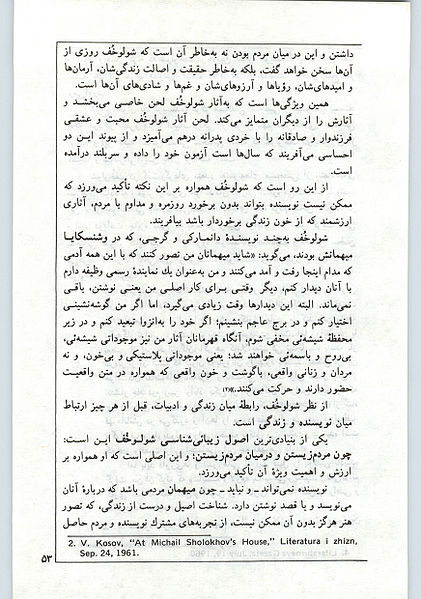 داشتن و این در میان مردم بودن نه به‌خاطر آن است که شولوخُف روزی از
آن‌ها سخن خواهد گفت، بلکه به‌خاطر حقیقت و اصالت زندگی‌شان، آرمان‌ها
و امیدهای‌شان، رؤیاها و آرزوهای‌شان و غم‌ها و شادی‌های آن‌ها است.
همین ویژگی‌ها است که به‌آثار شولوخُف لحن خاصی می‌بخشد و
آثارش را از دیگران متمایز می‌کند. لحن آثار شولوخُف محبت و عشقی
فرزندوار و صادقانه را با خردی پدرانه درهم می‌آمیزد و از پیوند این دو
احساسی می‌آفریند که سال‌ها است آزمون خود را داده و سربلند درآمده
است.
از این رو است که شولوخُف همواره بر این نکته تأکید می‌ورزد که
ممکن نیست نویسنده بتواند بدون برخورد روزمره و مداوم با مردم، آثاری
ارزشمند که از خون زندگی برخوردار باشد بیافریند.
شولوخُف به‌چند نویسندهٔ دانمارکی و گرجی، که در وشنسکایا
میهمانش بودند، می‌گوید: «شاید میهمانان من تصور کنند که با این همه آدمی
که مدام اینجا رفت و آمد می‌کنند و من به‌عنوان یك نمایندهٔ رسمی وظیفه دارم
با آنان دیدار کنم، دیگر وقتی برای کار اصلی من یعنی نوشتن، باقی
نمی‌ماند. البته این دیدارها وقت زیادی می‌گیرد، اما اگر من گوشه‌نشینی
اختیار کنم و در برج عاجم بنشینم؛ اگر خود را به‌انزوا تبعید کنم و در زیر
محفظهٔ شیشه‌ئی مخفی شوم، آنگاه قهرمانان آثار من نیز موجوداتی شیشه‌ئی،
بی‌روح و باسمه‌ئی خواهند شد؛ یعنی موجوداتی پلاستیکی و بی‌خون، و نه
مردان و زنانی واقعی، باگوشت و خون واقعی که همواره در متن واقعیت
حضور دارند و حرکت می‌کنند.»(۲)
از نظر شولوخُف، رابطهٔ میان زندگی و ادبیات، قبل از هر چیز ارتباط
میان نویسنده و زندگی است.
یکی از بنیادی‌ترین اصول زیبائی‌شناسی شولوخُف این است:
چون مردم‌زیستن و درمیان مردم‌زیستن؛ و این اصلی است که او همواره بر
ارزش و اهمیت ویژهٔ آن تأکید می‌ورزد.
نویسنده نمی‌تواند ـ و نباید ـ چون میهمان مردمی باشد که دربارهٔ آنان
می‌نویسد و یا قصد نوشتن دارد. شناخت اصیل و درست از زندگی، که تصور
هنر هرگز بدون آن ممکن نیست، از تجربه‌های مشترك نویسنده و مردم حاصل
2. V. Kosov, "At Michail Sholokhov's House," Literatura i zhizn,
Sep. 24, 1961.
۵۳